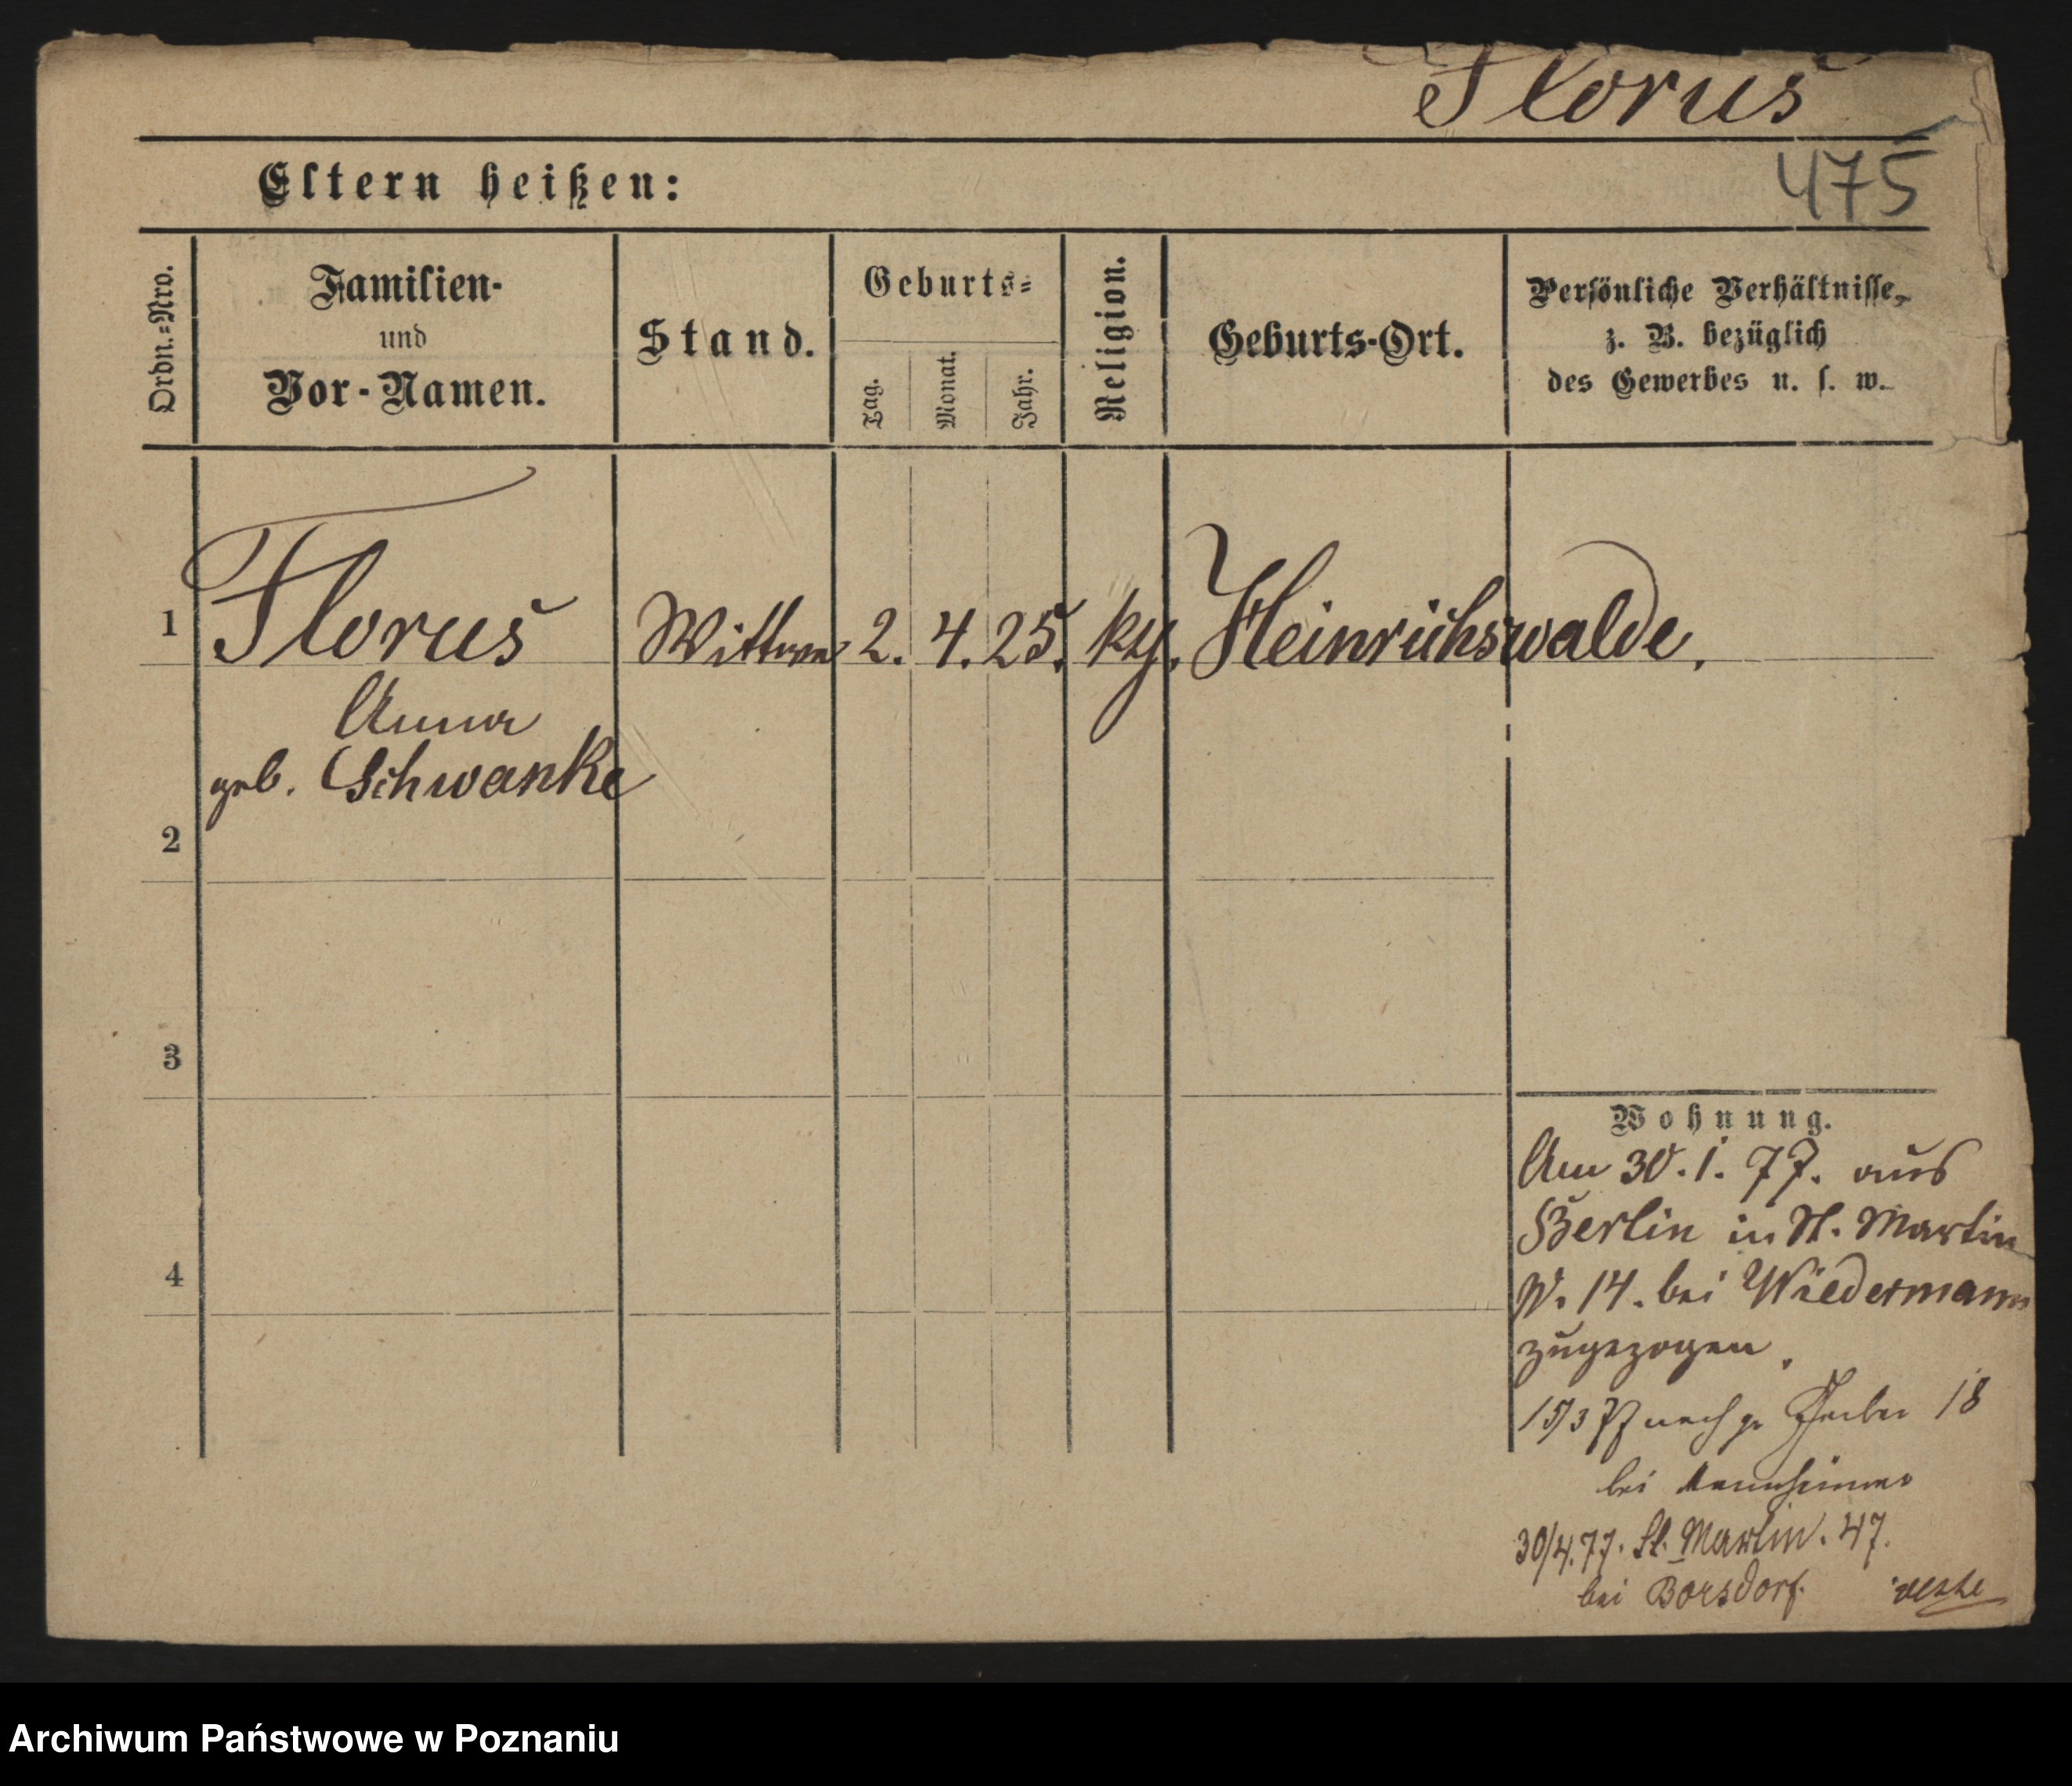 Florus
475
Eltern heißen:
Ordn.=Nro.
Familien-
und
Vor-Namen.
Stand.
Geburts=
Tag.
Monat.
Jahr.
Religion.
Geburts-Ort.
Persönliche Verhältnisse,
z. B. bezüglich
des Gewerbes u. s. w.
1 Florus Wittwe 2. 4. 25. Heinrichswalde.
Anna
geb. Schwanke
2
3
4
Wohnung.
Am 30. 1. 77. aus
Berlin in St. Martin
N. 14. bei Wiedermann
zugezogen.
15/3 77 nach gr 18
bei
30/4. 77. St. Martin. 47.
bei Borsdorf.
Archiwum Państwowe w Poznaniu